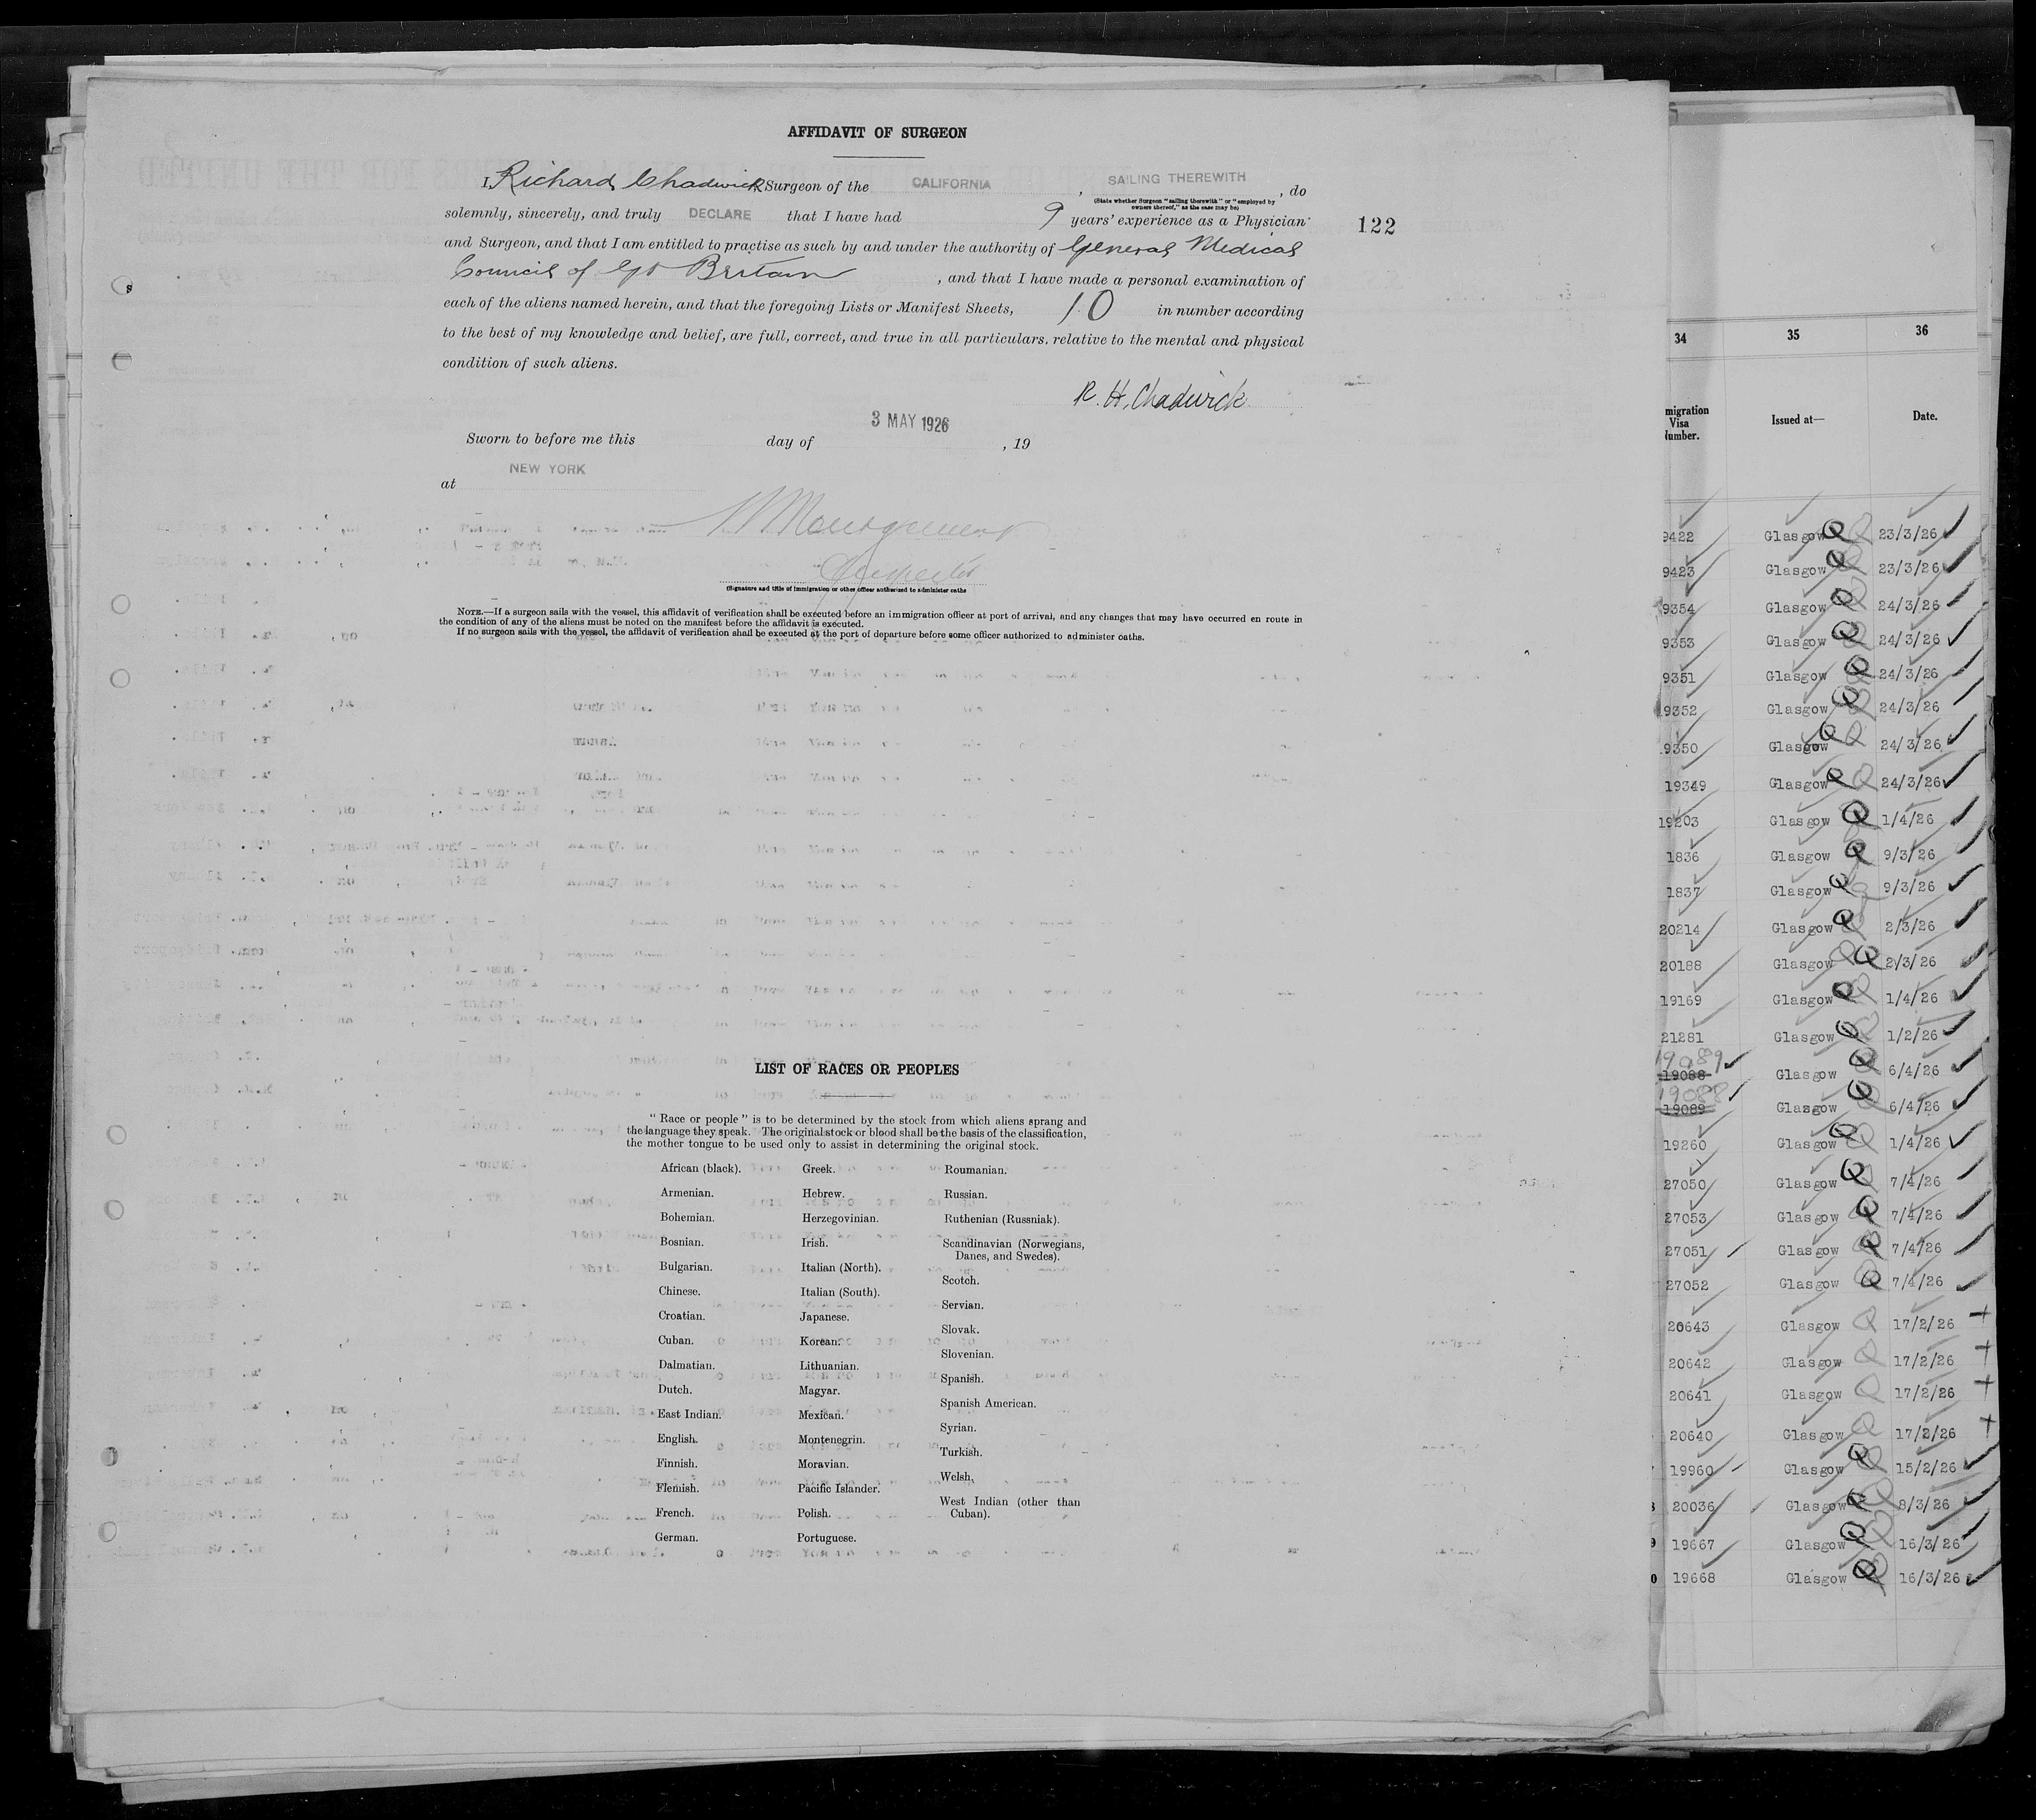 AFFIDAVIT OF SURGEON
I, Richard Chadwick Surgeon of the CALIFORNIA, SAILING THEREWITH, do
(State whether Surgeon "sailing therewith" or "employed by
owners thereof," as the case may be)
solemnly, sincerely, and truly DECLARE that I have had 9 years' experience as a Physician
122
and Surgeon, and that I am entitled to practise as such by and under the authority of General Medical
Council of Gt Britain, and that I have made a personal examination of
each of the aliens named herein, and that the foregoing Lists or Manifest Sheets, 10 in number according
to the best of my knowledge and belief, are full, correct, and true in all particulars, relative to the mental and physical
condition of such aliens.
R. H. Chadwick
3 MAY 1926
Sworn to before me this day of , 19
at NEW YORK
Montgomery
Inspector
(Signature and title of immigration or other officer authorized to administer oaths
NOTE.—If a surgeon sails with the vessel, this affidavit of verification shall be executed before an immigration officer at port of arrival, and any changes that may have occurred en route in
the condition of any of the aliens must be noted on the manifest before the affidavit is executed.
If no surgeon sails with the vessel, the affidavit of verification shall be executed at the port of departure before some officer authorized to administer oaths.
LIST OF RACES OR PEOPLES
"Race or people" is to be determined by the stock from which aliens sprang and
the language they speak. The original stock or blood shall be the basis of the classification,
the mother tongue to be used only to assist in determining the original stock.
African (black).
Armenian.
Bohemian.
Bosnian.
Bulgarian.
Chinese.
Croatian.
Cuban.
Dalmatian.
Dutch.
East Indian.
English.
Finnish.
Flemish.
French.
German.
Greek.
Hebrew.
Herzegovinian.
Irish.
Italian (North).
Italian (South).
Japanese.
Korean.
Lithuanian.
Magyar.
Mexican.
Montenegrin.
Moravian.
Pacific Islander.
Polish.
Portuguese.
Roumanian.
Russian.
Ruthenian (Russniak).
Scandinavian (Norwegians,
Danes, and Swedes).
Scotch.
Servian.
Slovak.
Slovenian.
Spanish.
Spanish American.
Syrian.
Turkish.
Welsh.
West Indian (other than
Cuban).
34 35 36
migration
Visa
Number.
Issued at—
Date.
9422 Glasgow 23/3/26
9423 Glasgow 23/3/26
9354 Glasgow 24/3/26
9353 Glasgow 24/3/26
9351 Glasgow 24/3/26
9352 Glasgow 24/3/26
9350 Glasgow 24/3/26
19349 Glasgow 24/3/26
19203 Glasgow 1/4/26
1836 Glasgow 9/3/26
1837 Glasgow 9/3/26
20214 Glasgow 2/3/26
20188 Glasgow 2/3/26
19169 Glasgow 1/4/26
21281 Glasgow 1/2/26
19089
19088 Glasgow 6/4/26
19088
19089 Glasgow 6/4/26
19260 Glasgow 1/4/26
27050 Glasgow 7/4/26
27053 Glasgow 7/4/26
27051 Glasgow 7/4/26
27052 Glasgow 7/4/26
20643 Glasgow 17/2/26
20642 Glasgow 17/2/26
20641 Glasgow 17/2/26
20640 Glasgow 17/2/26
19960 Glasgow 15/2/26
20036 Glasgow 8/3/26
9 19667 Glasgow 16/3/26
0 19668 Glasgow 16/3/26